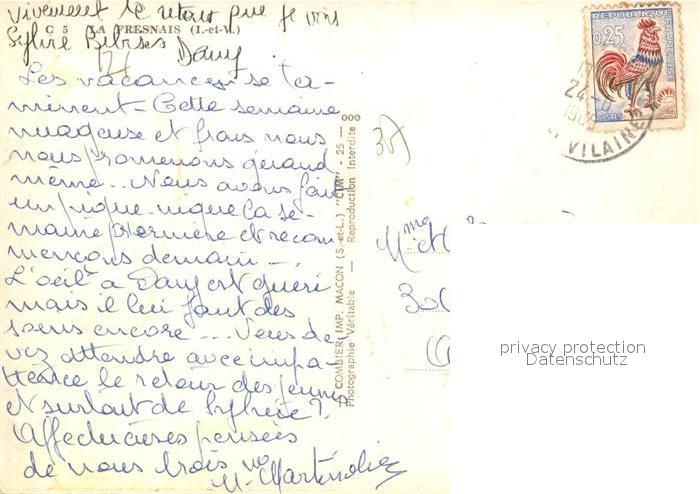 Vivement le retour que je vous
C 5 LA FRESNAIS (I.-et-V.)
Sylvie Bibises Dany
Les vacances se ter-
minent - Cette semaine
nuageuse et frais nous
nous promenons quand
même.. Nous avons fait
un pique-nique la se-
maine dernière et recom
mençons demain ...
L'oeil à Dany est guéri
mais il lui faut des
soins encore ... Vous de-
vez attendre avec impa-
tience le retour des jeunes
et surtout de Sylvie ?.
Affectueuses pensées
de nous trois
COMBIER IMP. MACON (S.-et-L.) "CIM" - 25 - 000
Photographie Véritable — Reproduction Interdite
RÉPUBLIQUE FRANÇAISE
0,25
POSTES
24-8
VILAINE
M-et
30
privacy protection
Datenschutz